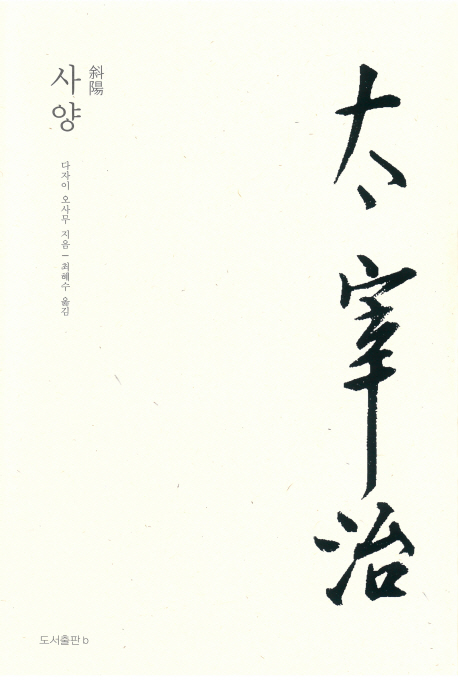 太宰治
斜陽
사양
다자이 오사무 지음 — 최혜수 옮김
도서출판 b